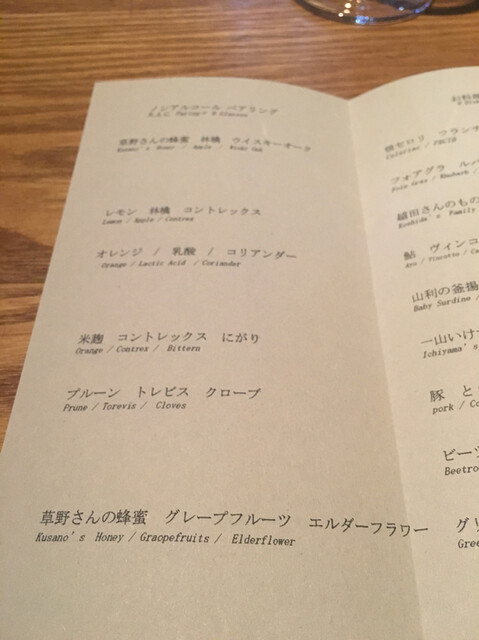 ノンアルコール ペアリング
草野さんの蜂蜜 林檎 ウイスキーオーク
Kusano's Honey / Apple / Wisky Oak
レモン 林檎 コントレックス
Lemon / Apple / Contrex
オレンジ / 乳酸 / コリアンダー
Orange / Lactic Acid / Coriander
米麹 コントレックス にがり
Orange / Contrex / Bittern
プルーン トレビス クローブ
Prune / Torevis / Cloves
草野さんの蜂蜜 グレープフルーツ エルダーフラワー
Kusano's Honey / Graopefruits / Elderflower
お料理
根セロリ フランチ
フォアグラ ルバ
Foie Gras / Rhubarb /
越田さんのもの
Koshida's Family
鮎 ヴィンコ
Ayu / Vincotto / Ca
山利の釜揚
Baby Surdine /
一山いけす
Ichiyama's
豚 と
pork / Co
ビーツ
Beetroo
グリ
Gree